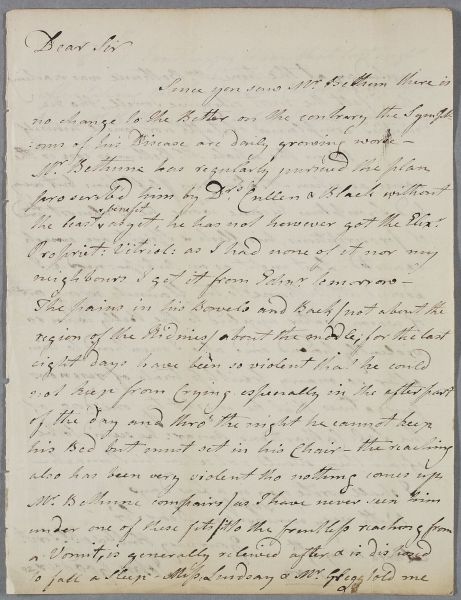 Dear Sir
Since you saw Mr. Bethun there is
no change to the Better on the contrary the Sympt-
oms of his Disease are daily growing worse—
Mr. Bethune has regularly pursued the plan
prescrib'd him by Drs. Cullen & Black without
the least benefit as yet, he has not however got the Elixr.
Propriet: Vitriol: as I had none of it nor my
neighbours I get it from Edinr. tomorrow—
The pains in his Bowels and Back (not about the
region of the Kidnies) about the middle, for the last
eight days have been so violent that he could
not keep from Crying especially in the after part
of the day and thro' the night he cannot keep
his Bed but must set in his Chair— the reaching
also has been very violent tho nothing comes up
Mr. Bethune compairs (as I have never seen him
under one of these fits) to the fruitless reaching from
a Vomit, is generally releived after & is disposed
to fall a Sleep. Miss Lindsay & Mr. Gregg told me